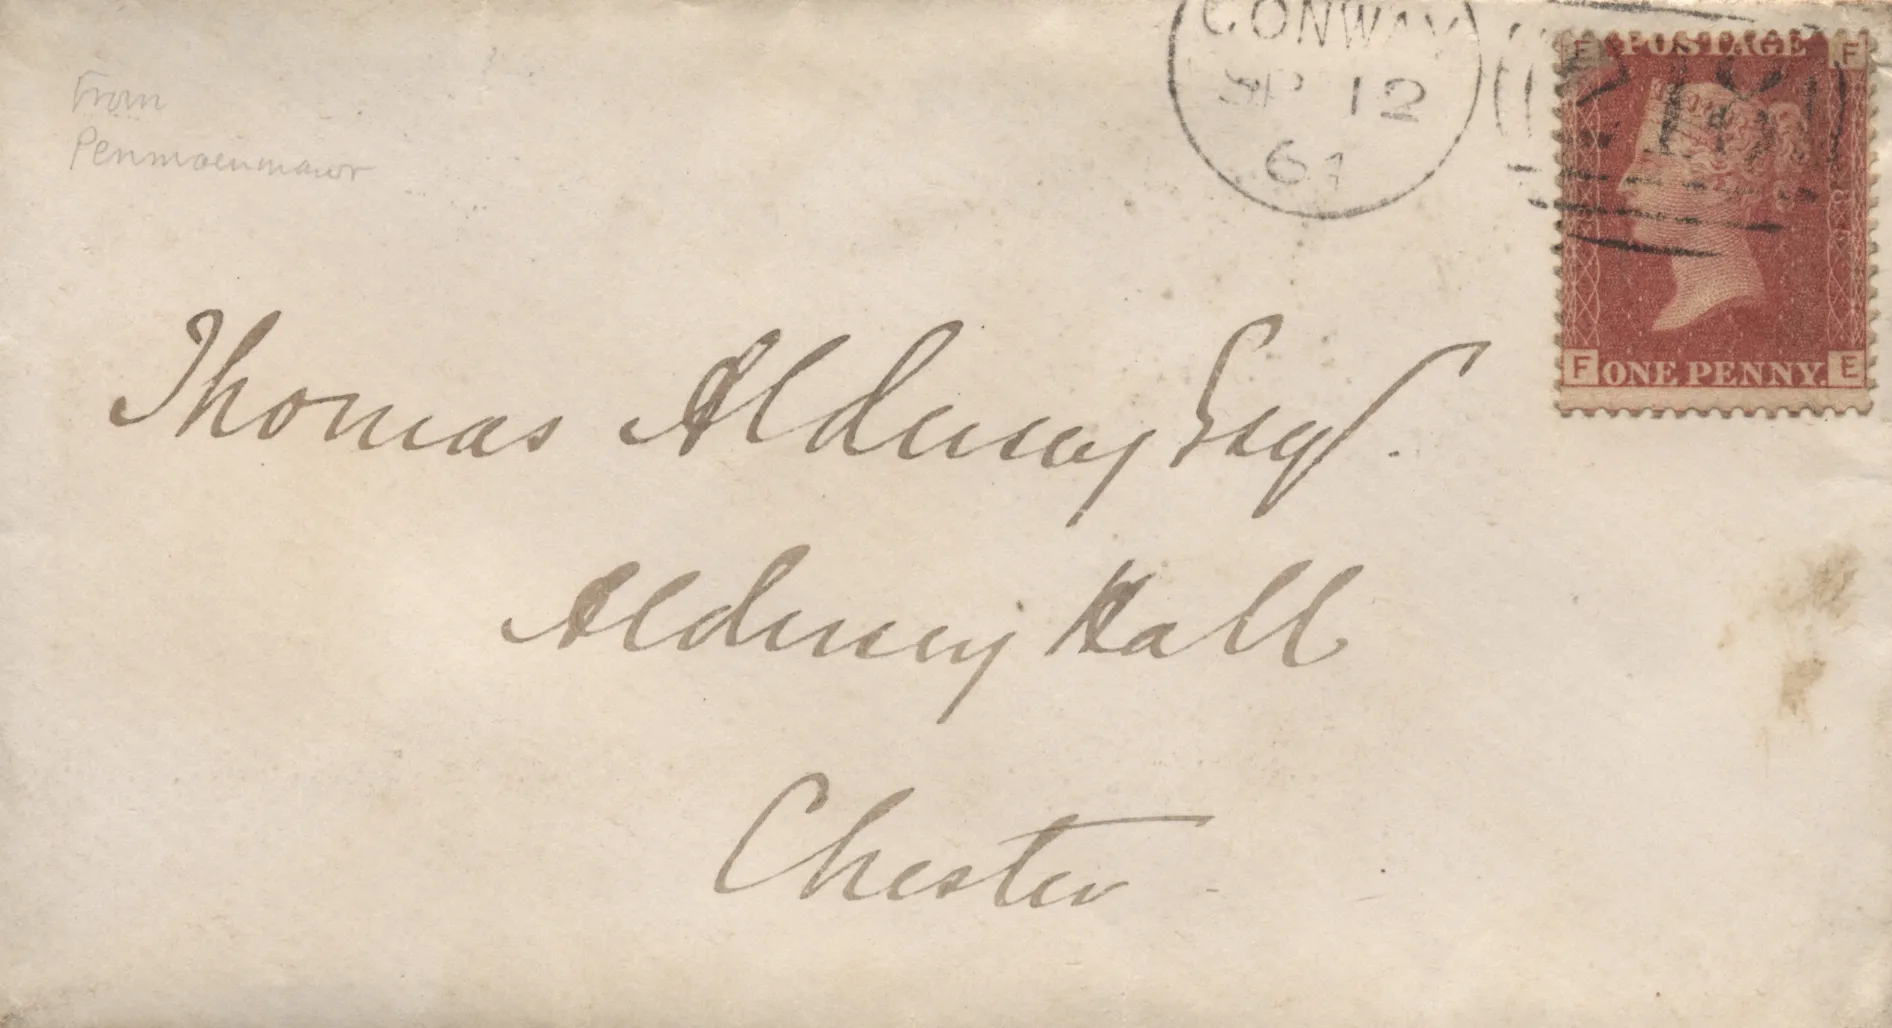 From
Penmaenmawr
CONWAY
SP 12
61
E POSTAGE F
F ONE PENNY. E
Thomas Aldersey Esqr.
Aldersey Hall
Chester